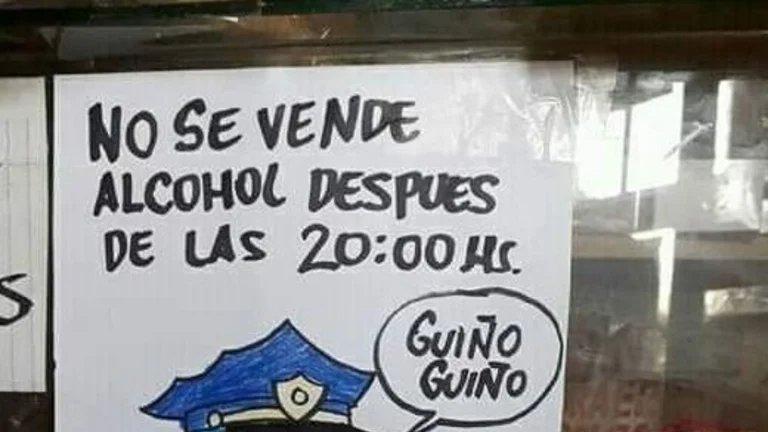 NO SE VENDE
ALCOHOL DESPUES
DE LAS 20:00 HS.
GUIÑO
GUIÑO
S